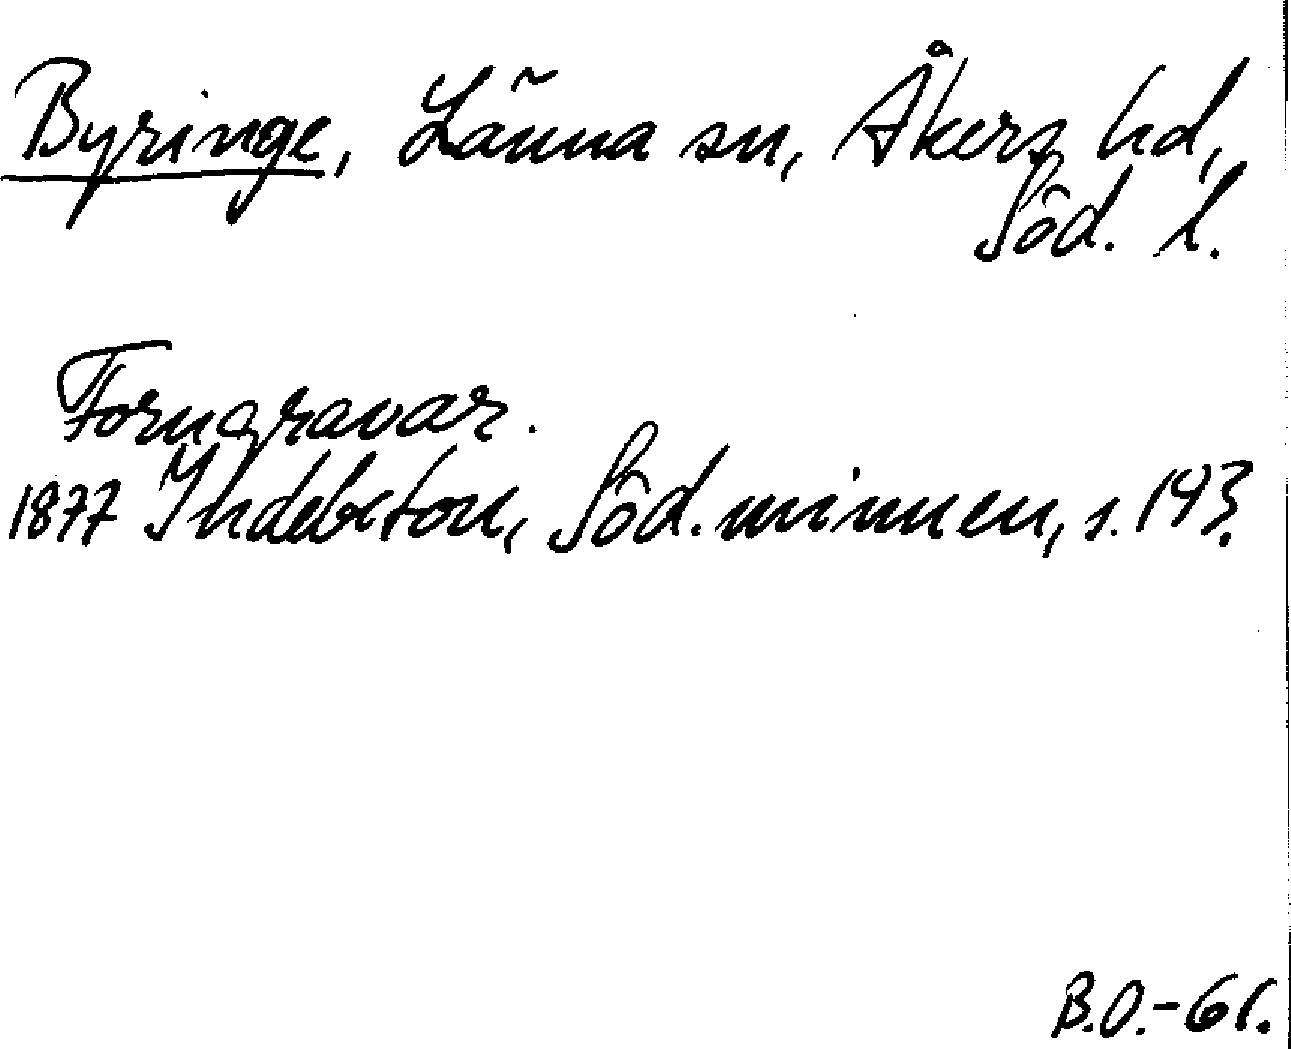 Byringe, Länna sn, Åkers hd,
Söd. l.
Forngravar.
1877 Indebetou, Söd. minnen, s. 193.
B.O.-61.